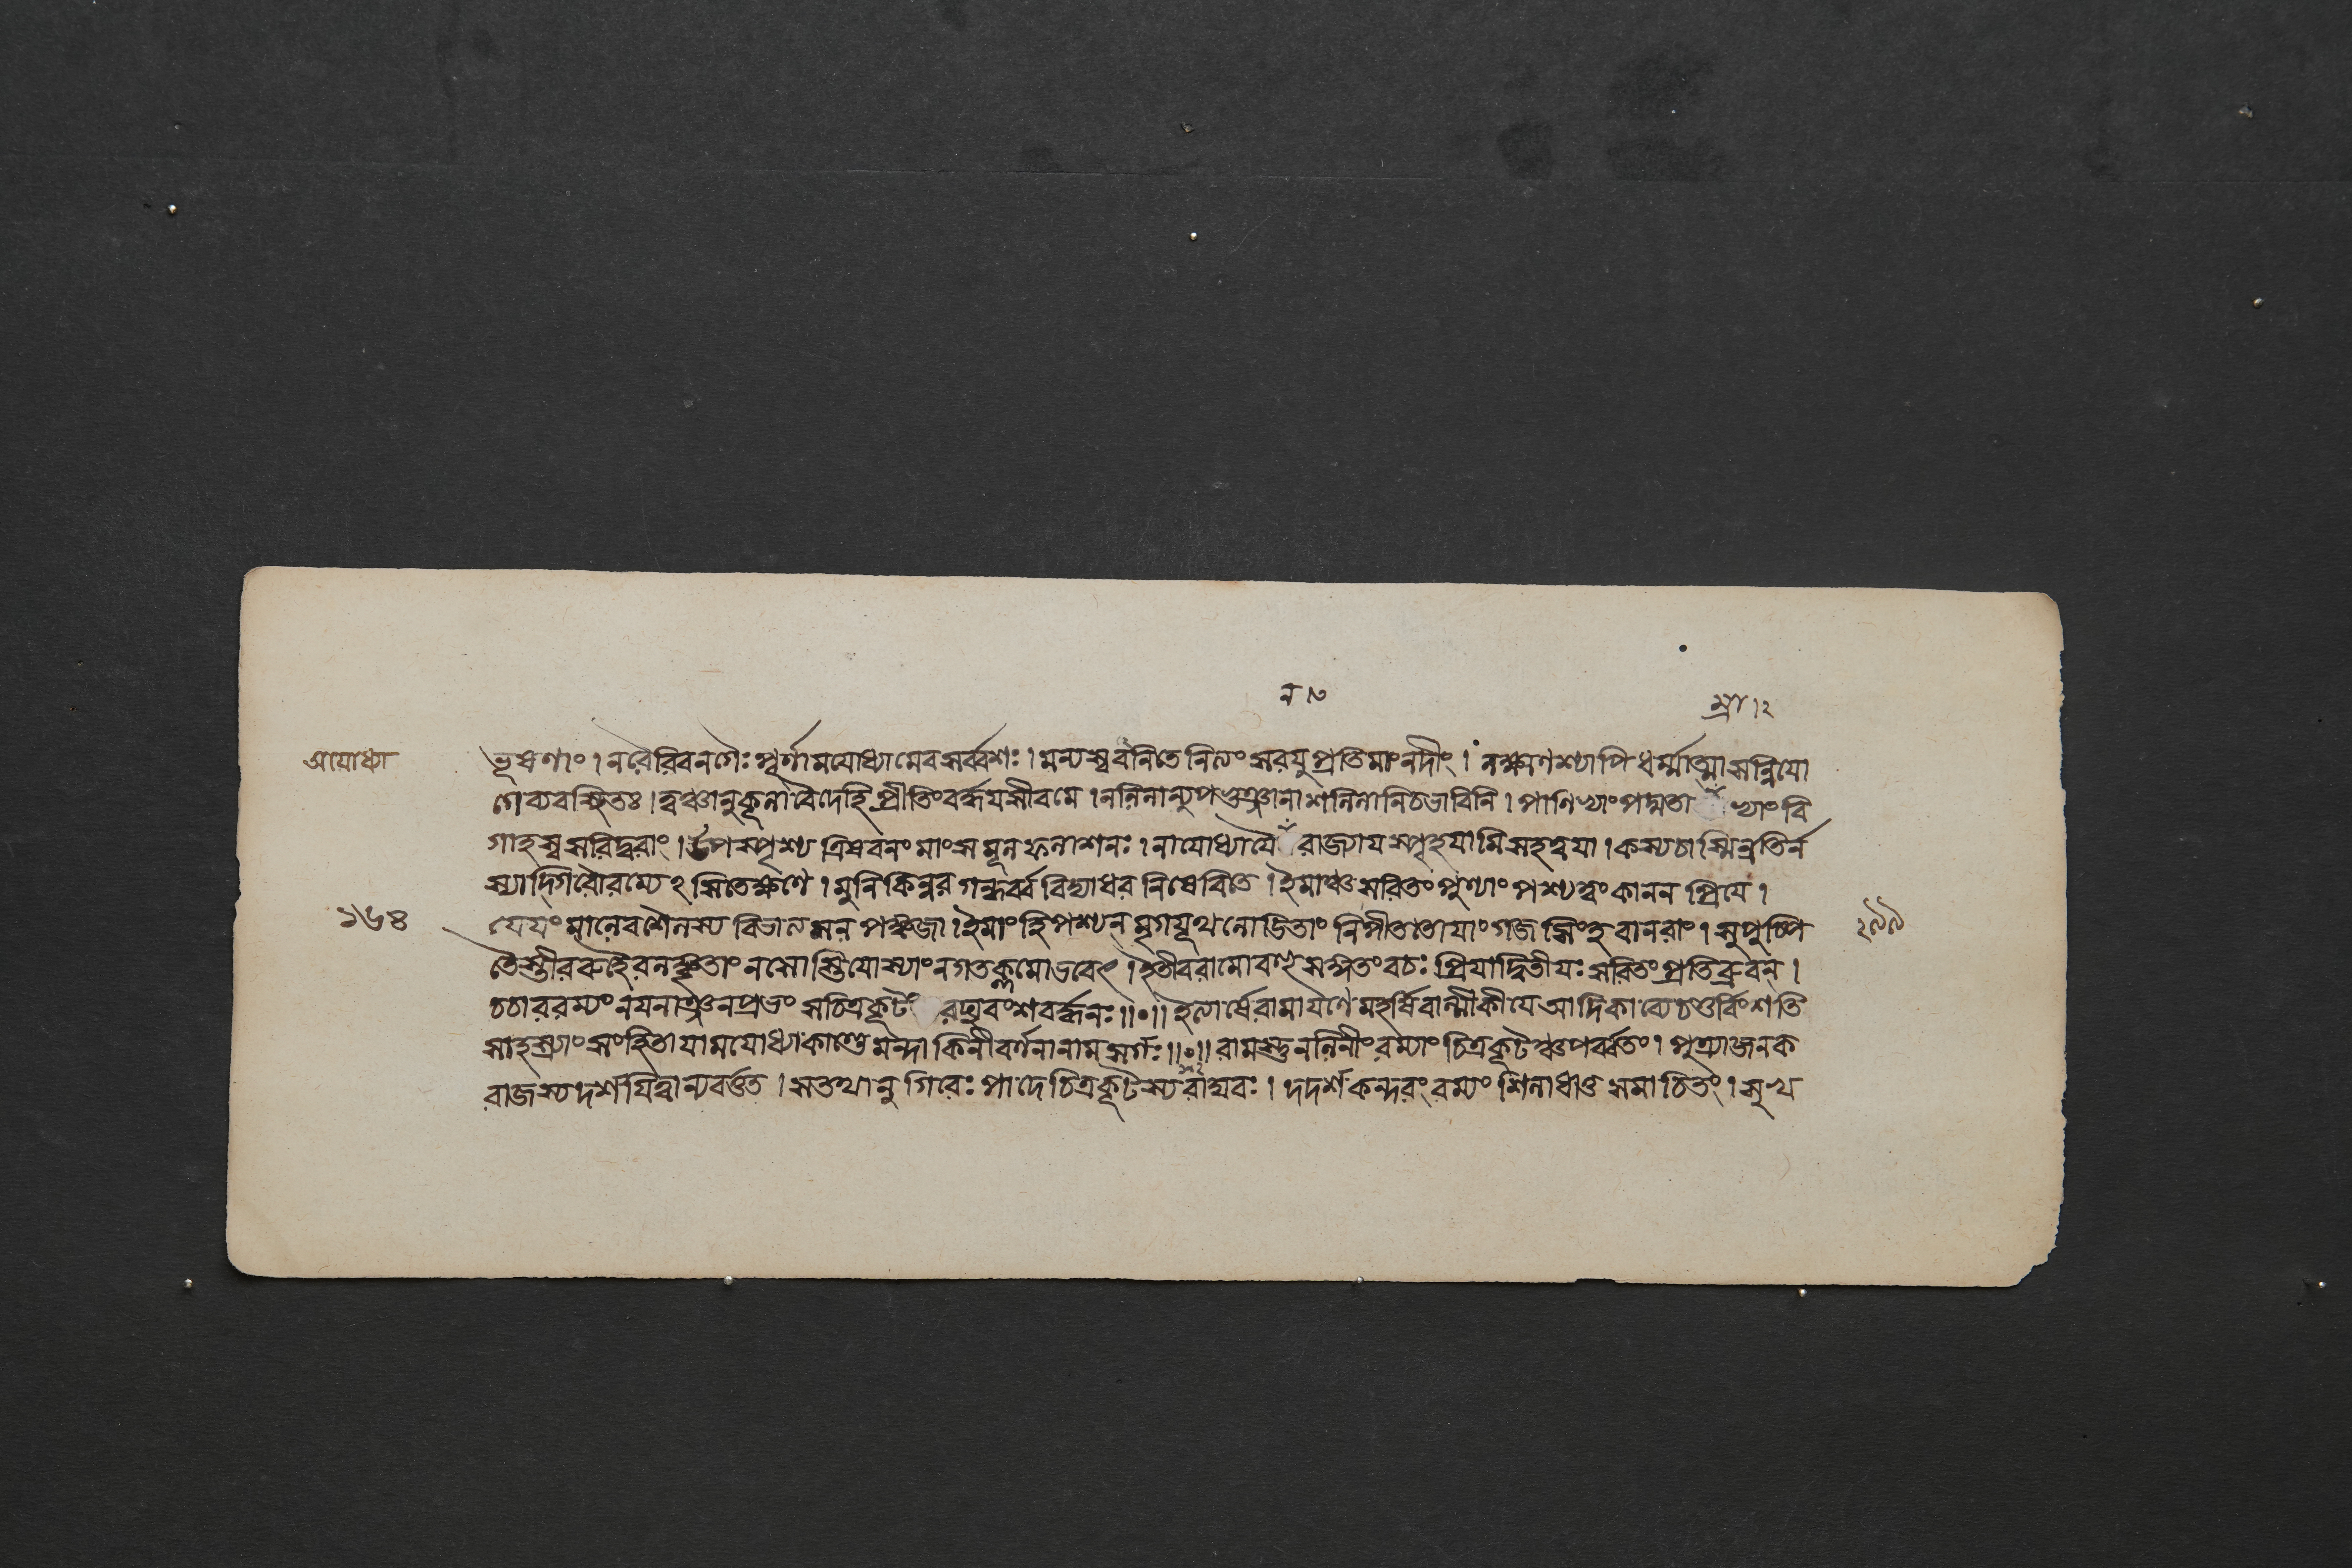 ন ৩
ম্রী । ২
অযোধ্যা
ভূষণাং । নরৈরিবনগৈঃ পূর্ণামযোধ্যামেবসর্ব্বশঃ । মন্যস্ববনিতে নিত্যং সরযুপ্রতিমাং নদীং । লক্ষ্মণশ্চাপি ধর্ম্মাত্মা সন্নিযো
গে ব্যবস্থিতঃ । ত্বঞ্চানুকূলাবৈদেহি প্রীতিংবর্দ্ধযসীবমে । নলিনান্যুপভুঞ্জানা শলিলানিচভাবিনি । পাণিভ্যাংপদ্মতা ভ্যাংবি
গাহস্বসরিদ্বরাং । উপস্পৃশ্য ত্রিষবনং মাংসমূলফলাশনঃ । নাযোধ্যাযৈ রাজ্যায স্পৃহযামিসহত্বযা । কস্যচাস্মিন্নতির্ন
স্যাদ্গিরৌরম্যে ঽসিতেক্ষণে । মুনিকিন্নর গন্ধর্ব্ব বিদ্যাধর নিষেবিতে । ইমাঞ্চসরিতং পুণ্যাং পশ্যত্বং কানন প্রিযে ।
১৬৪
যেযং মালেবশৈলস্য বিভাত্যমলপঙ্কজা । ইমাং হি পশ্যন্ মৃগযূথলোড়িতাং নিপীততোযাং গজসিংহ বানরাং । সুপুষ্পি
২৯৯
তৈস্তীররুহৈরলঙ্কৃতাং নসোস্তিযোস্যাং নগতক্লমোভবেৎ । ইতীবরামোবহুসঙ্গতংবচঃ প্রিযাদ্বিতীযঃ সরিতংপ্রতিব্রুবন্ ।
চচাররম্যং নযনাঞ্জনপ্রভং সচিত্রকূটং রঘুবংশবর্দ্ধনঃ ॥ ০ ॥ ইত্যার্ষেরামাযণে মহর্ষিবাল্মীকীযে আদিকাব্যে চতুর্ব্বিংশতি
সাহস্র্যাং সংহিতাযামযোধ্যাকাণ্ডে মন্দাকিনীবর্ণনানাম সর্গঃ ॥ ০ ॥ রামস্তুনলিনীং রম্যাং চিত্রকূটঞ্চপর্ব্বতং । পুত্র্যাজনক
রাজস্য দর্শযিত্বান্যবর্ত্তত । সতথানু গিরেঃ পাদে চিত্রকূটস্যরাঘবঃ । দদর্শকন্দরং রম্যং শিলাধাতু সমাচিতং । সুখ